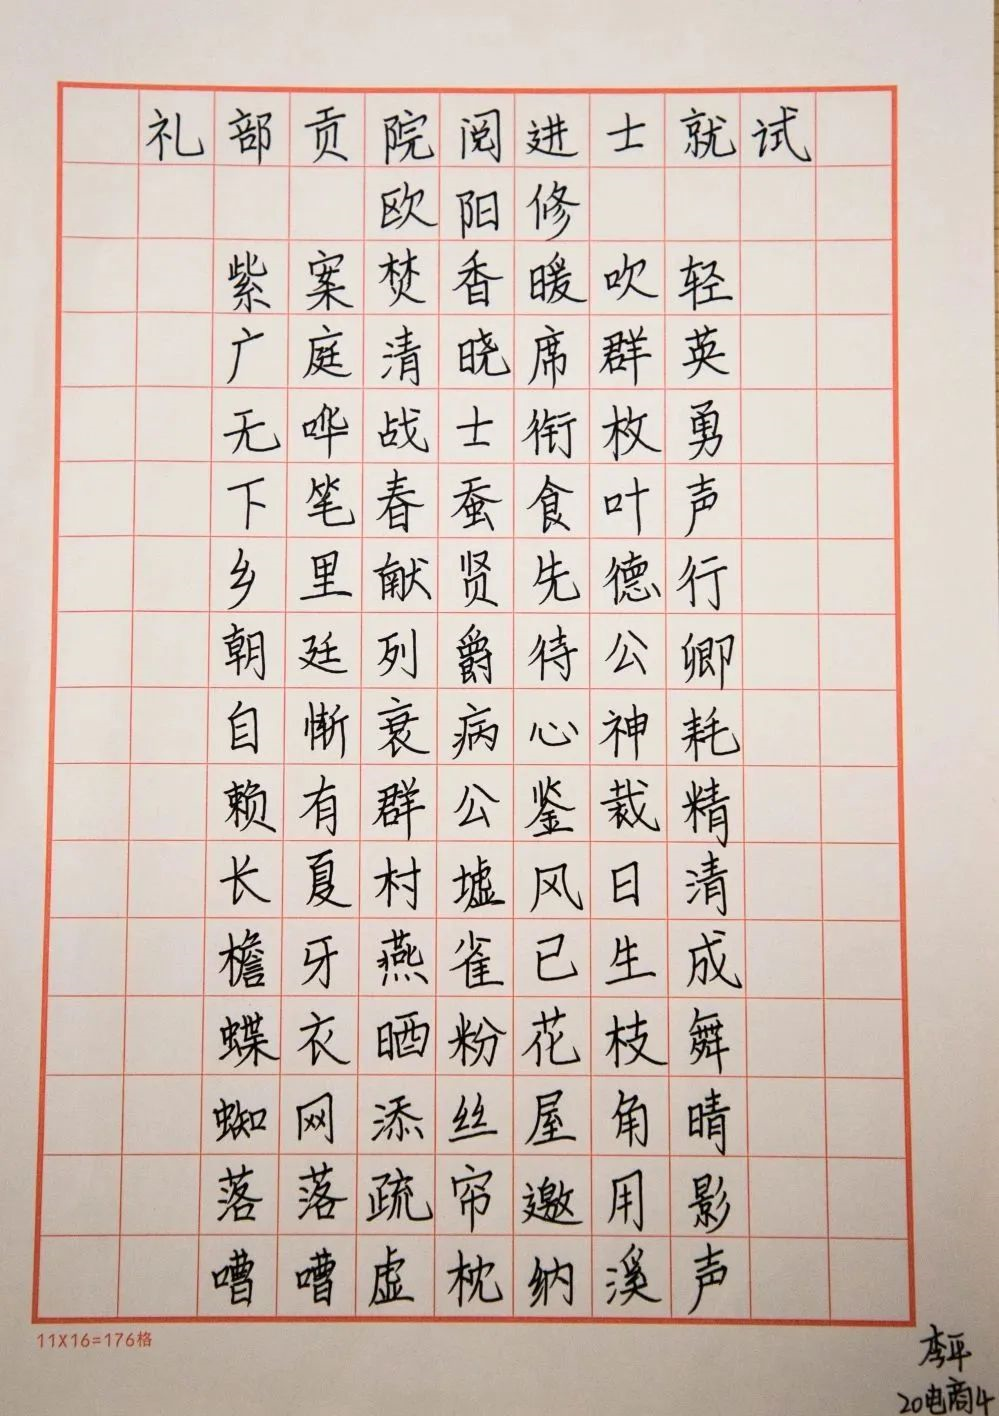 礼部贡院阅进士就试
欧阳修
紫案焚香暖吹轻
广庭清晓席群英
无哗战士衔枚勇
下笔春蚕食叶声
乡里献贤先德行
朝廷列爵待公卿
自惭衰病心神耗
赖有群公鉴裁精
长夏村墟风日清
檐牙燕雀已生成
蝶衣晒粉花枝舞
蜘网添丝屋角晴
落落疏帘邀用影
嘈嘈虚枕纳溪声
11X16=176格
李平
20电商4